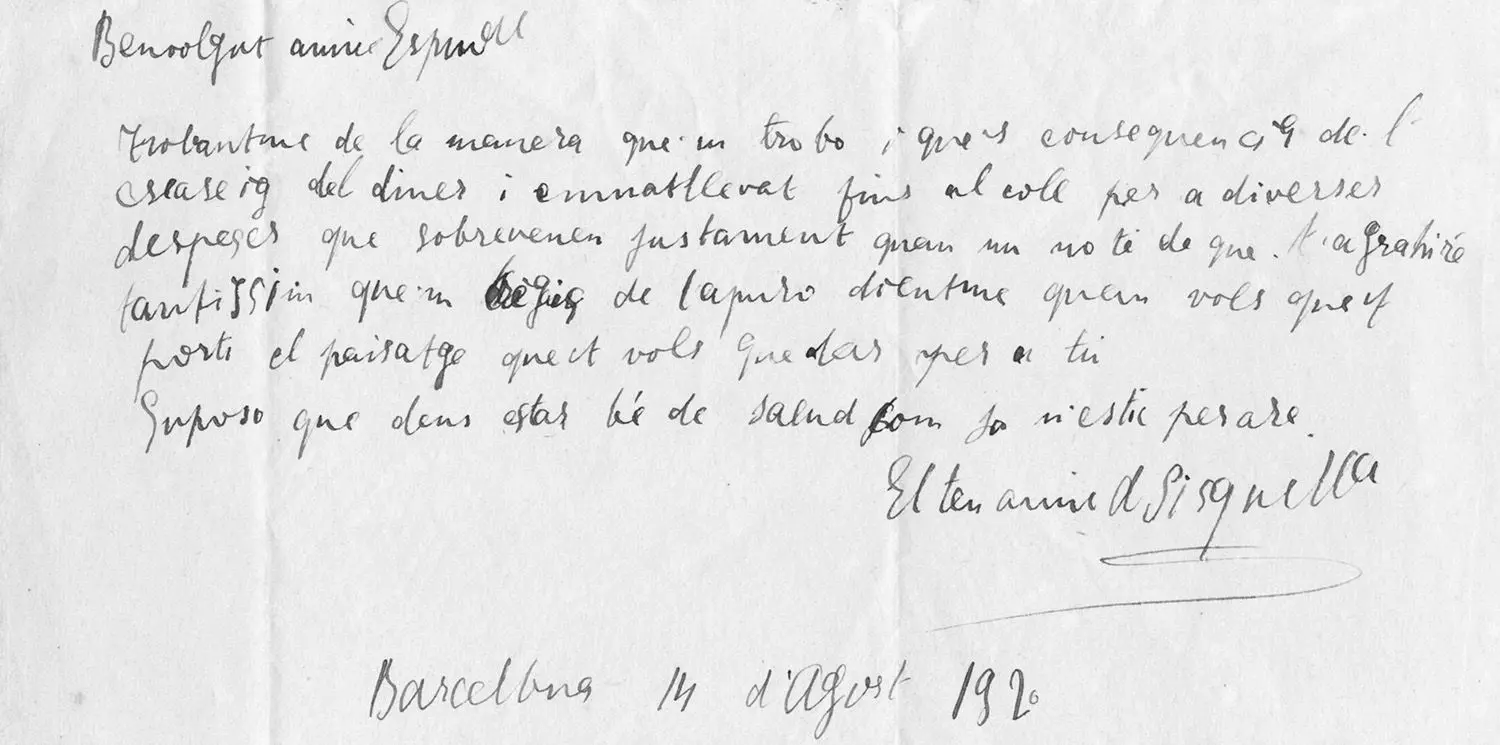 Benvolgut amic Espinal
Trobantme de la manera que'm trobo i que's consequencia de l'
escaseig del diner i emmatllevat fins al coll per a diverses
despeges que sobrevenen justament quan un no té de que. t'agrahiré
tantissim que'm de l'apuro dientme quan vols que't
porti el paisatge que't vols quedar per a tu
Suposo que deus estar bé de salud com jo n'estic per are.
El teu amic d Sisquella
Barcelona 14 d'Agost 192